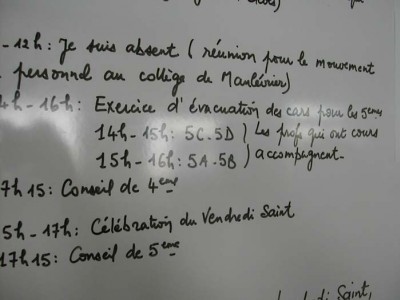 - 12h : Je suis absent ( réunion pour le mouvement
personnel au collège de Maulévrier)
4h - 16h : Exercice d'évacuation des cars pour les 5emes
14h - 15h : 5C. 5D ) Les profs qui ont cours
15h - 16h : 5A - 5B ) accompagnent.
7h 15 : Conseil de 4eme
5h - 17h : Célébration du Vendredi Saint
17h 15 : Conseil de 5eme
di Saint,